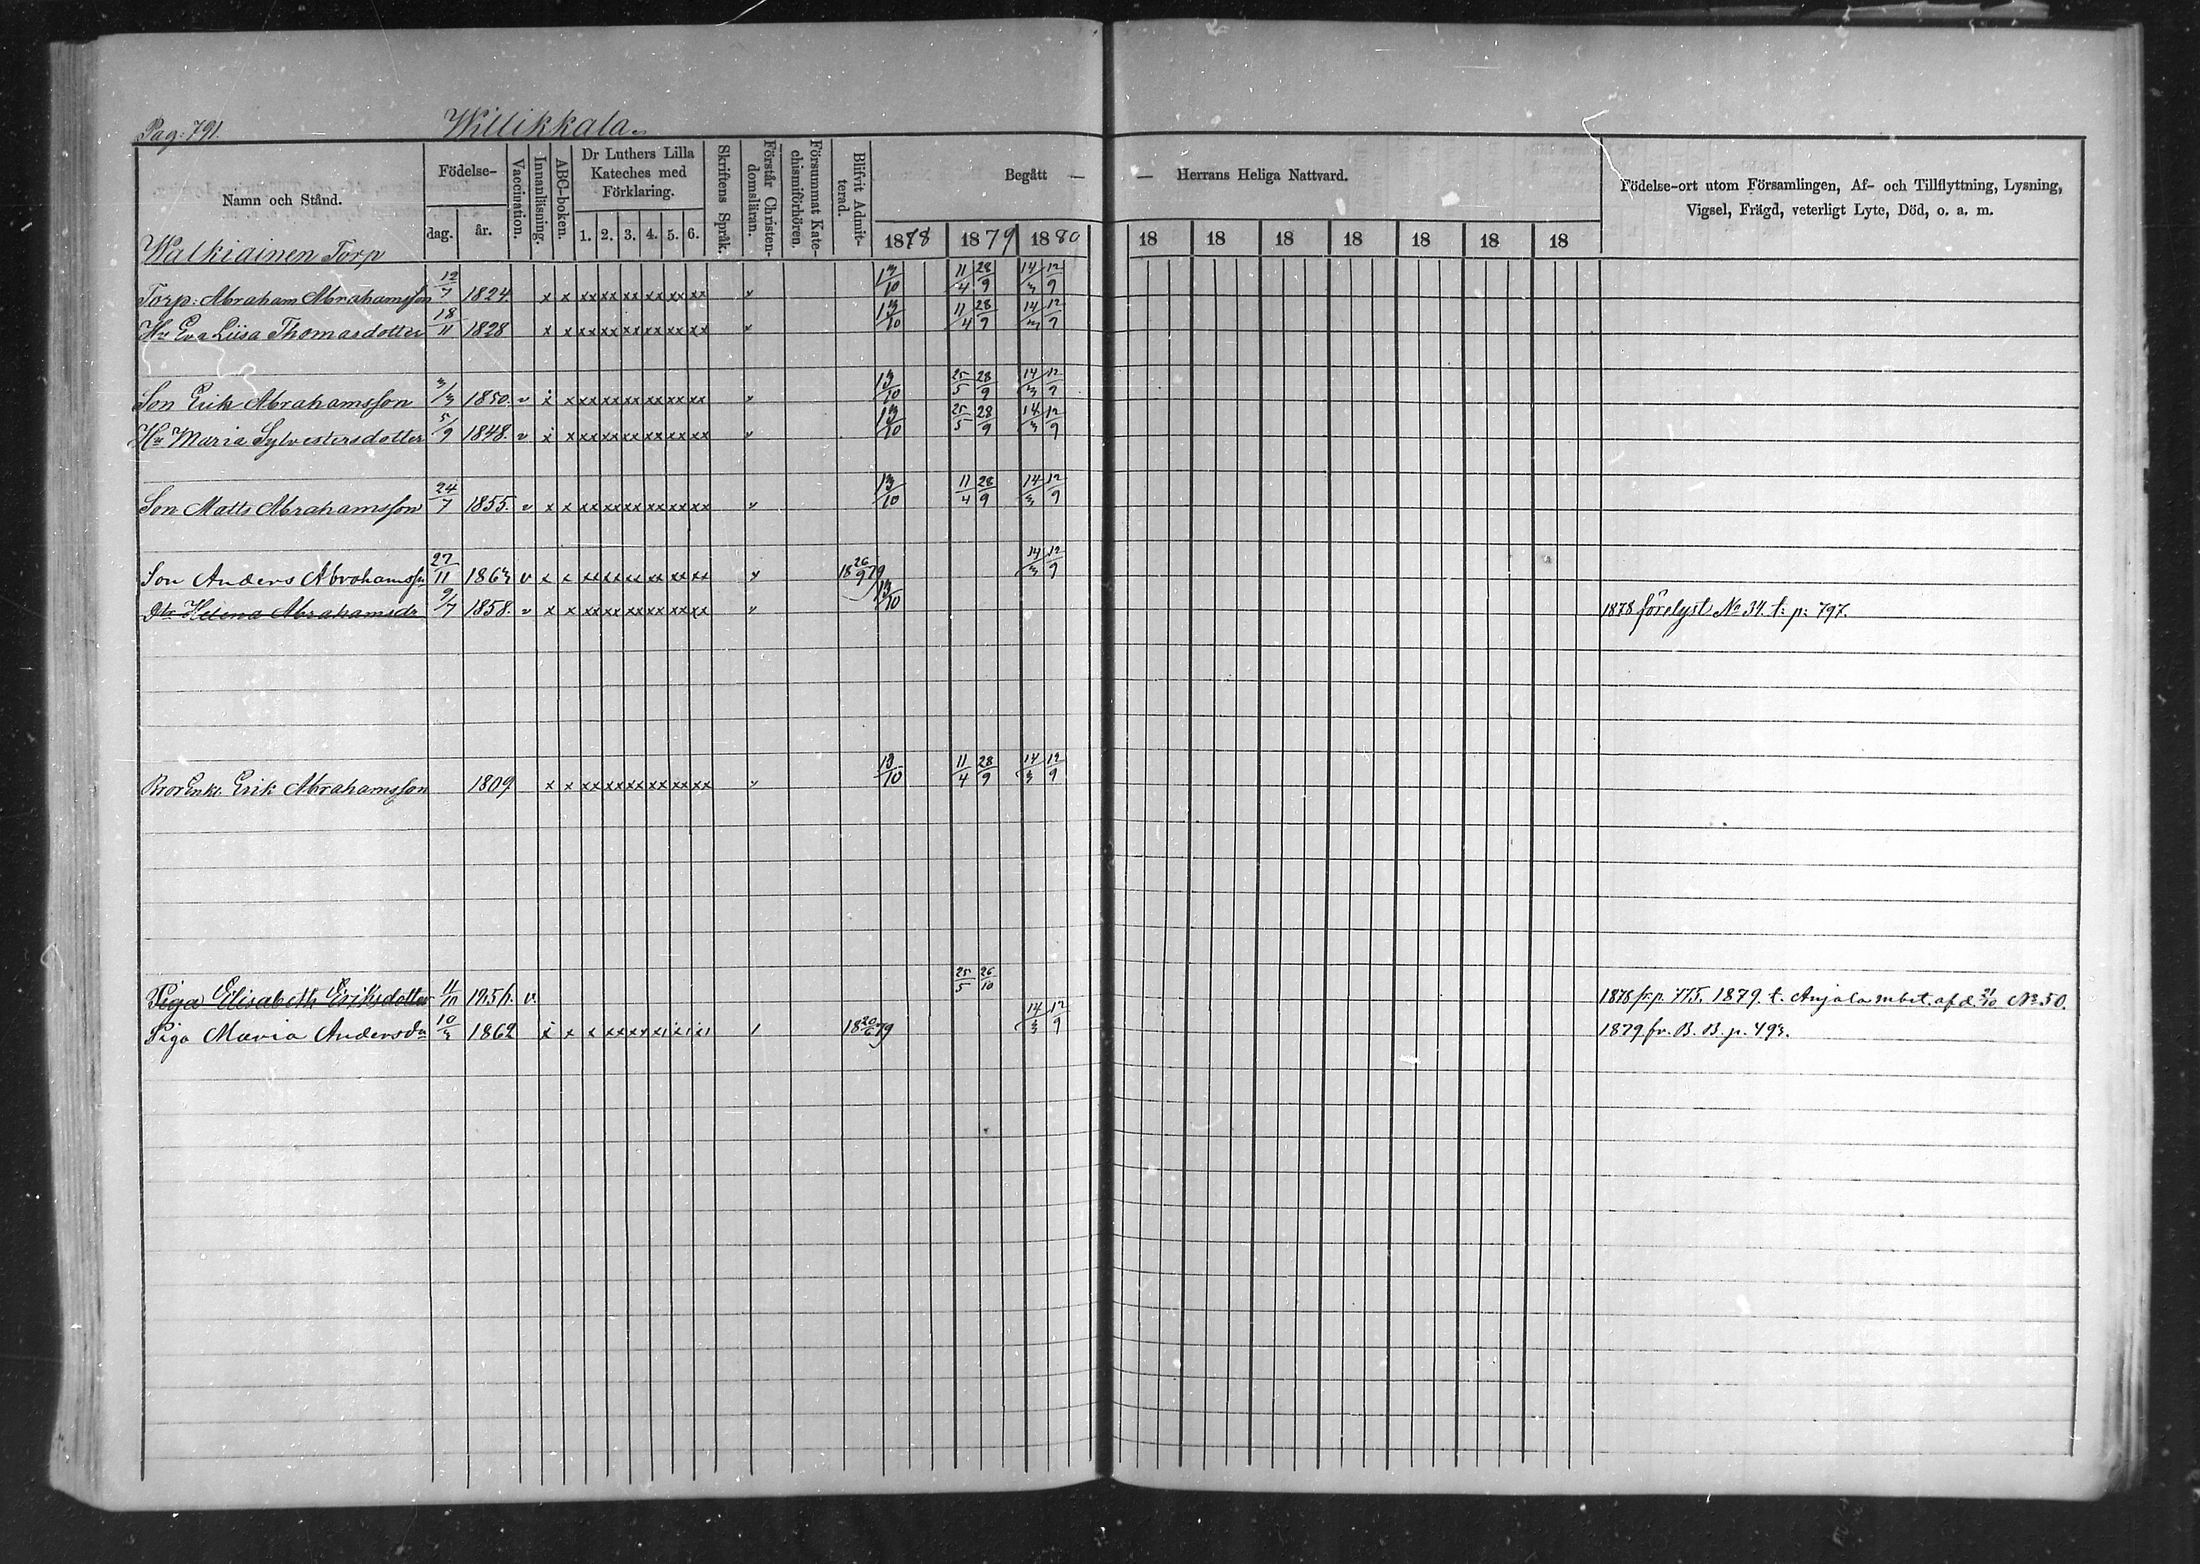 Pag: 791. Willikkala.
Namn och Stånd. Födelse- dag. år. Vaccination. Innanläsning. ABC-boken. Dr Luthers Lilla Kateches med Förklaring. 1. 2. 3. 4. 5. 6. Skriftens Språk. Förstår Christendomsläran. Försummat Katechismiförhören. Blifvit Admitterad. Begått — — Herrans Heliga Nattvard. Födelse-ort utom Församlingen, Af- och Tillflyttning, Lysning, Vigsel, Frägd, veterligt Lyte, Död, o. a. m.
1878 1879 1880 18 18 18 18 18 18 18
Walkiainen Torp
Torp: Abraham Abrahamsson 12/7 1824 x x xx xx xx xx xx xx v 13/10 11/4 28/9 14/3 12/9
Hu Eva Liisa Thomasdotter 18/11 1828 x x xx xx xx xx xx xx v 13/10 11/4 28/9 14/3 12/9
Son Erik Abrahamsson 3/3 1850. v x x xx xx xx xx xx xx v 13/10 25/5 28/9 14/3 12/9
Hu Maria Sylvestersdotter 5/9 1848. v x x xx xx xx xx xx xx v 13/10 25/5 28/9 14/3 12/9
Son Matts Abrahamsson 24/7 1855. v x x xx xx xx xx xx xx v 13/10 11/4 28/9 14/3 12/9
Son Anders Abrahamss 27/11 1863 v x x xx xx xx xx xx xx v 18 26/9 79 14/3 12/9
Dtr Helena Abrahamsdr 9/7 1858. v x x xx xx xx xx xx xx v 13/10 1878 förelyst No 34. t: p: 797.
Bror Enkl. Erik Abrahamsson 1809 x x xx xx xx xx xx xx v 13/10 11/4 28/9 14/3 12/9
Piga Elisabeth Eriksdotter 11/10 v. 25/5 26/10 1878 fr. p. 775. 1879. t. Anjala m bet. af d. 21/10 No 50.
Piga Maria Andersdr 10/3 1862 x x x xx xx 18 20/6 79 14/3 12/9 1879 fr. B. B. p. 493.